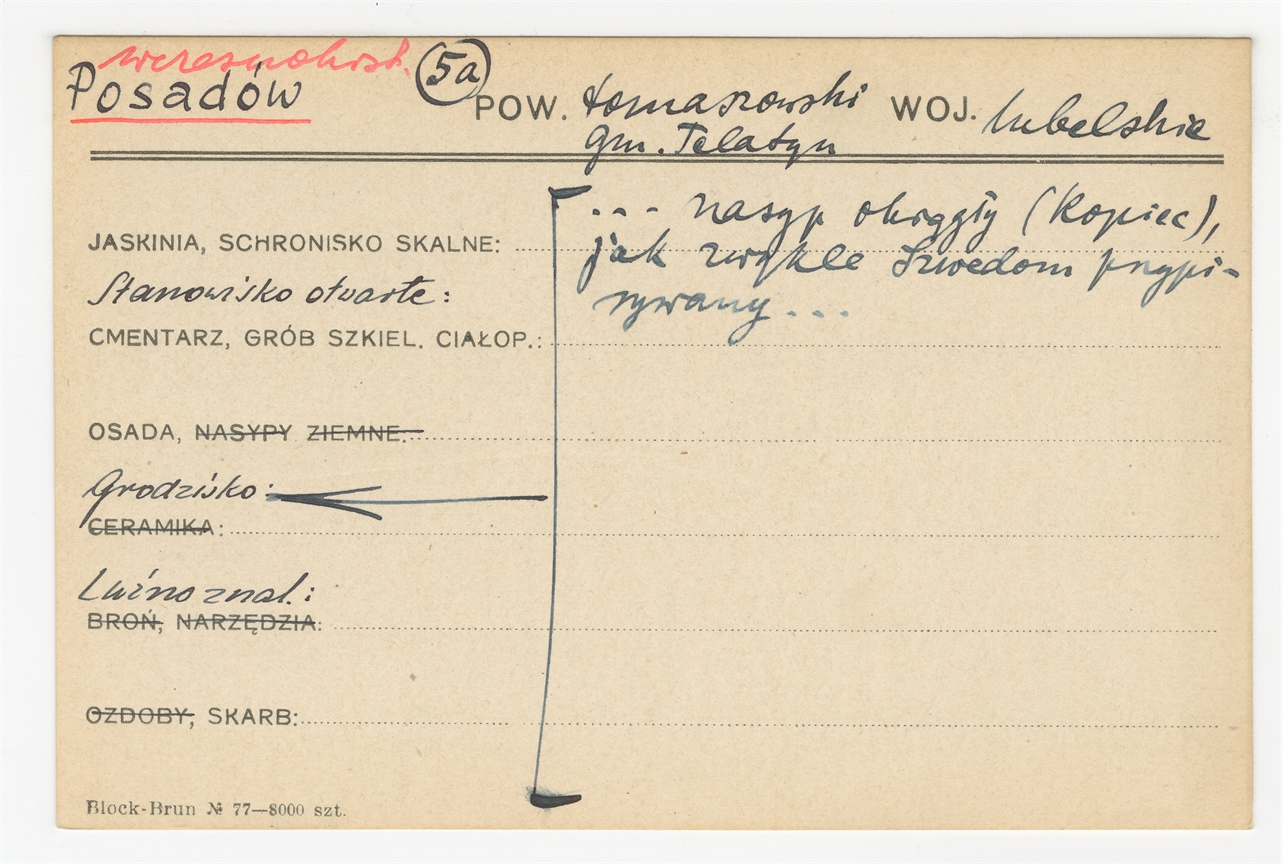 wczesnohist.
Posadów (5a) POW. tomaszowski WOJ. lubelskie
gm. Telatyn
... nasyp okrągły (kopiec),
JASKINIA, SCHRONISKO SKALNE:
jak zwykle Szwedom przypi-
Stanowisko otwarte:
sywany...
CMENTARZ, GRÓB SZKIEL. CIAŁOP.:
OSADA, NASYPY ZIEMNE:
Grodzisko:
CERAMIKA:
Luźno znal.:
BROŃ, NARZĘDZIA:
OZDOBY, SKARB:
Block-Brun № 77—8000 szt.